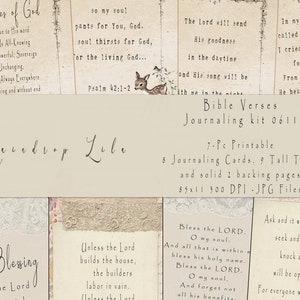 of God
All-Knowing
Powerful; Sovereign
Unchanging.
Always Everywhere
and without end
so my soul
pants for You, God.
soul thirsts for God,
for the living God...
Psalm 42:1-2
The Lord will send
His goodness
in the daytime
and His song will be
with me in the night
Bible Verses
Journaling kit 0611
7-Pc Printable
8 Journaling Cards, 9 Tall T
and solid 2 backing pages
85x11 300 DPI -JPG Files
Lila
Blessing
Unless the Lord
builds the house,
the builders
labor in vain.
Unless the Lord
Bless the LORD,
O my soul,
And all that is within me
bless his holy name.
Bless the LORD,
O my soul,
And forget not
all his benefits,
Ask and it
seek and
knock and
will be open
For everyone